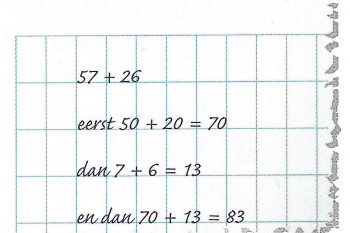 57 + 26
eerst 50 + 20 = 70
dan 7 + 6 = 13
en dan 70 + 13 = 83